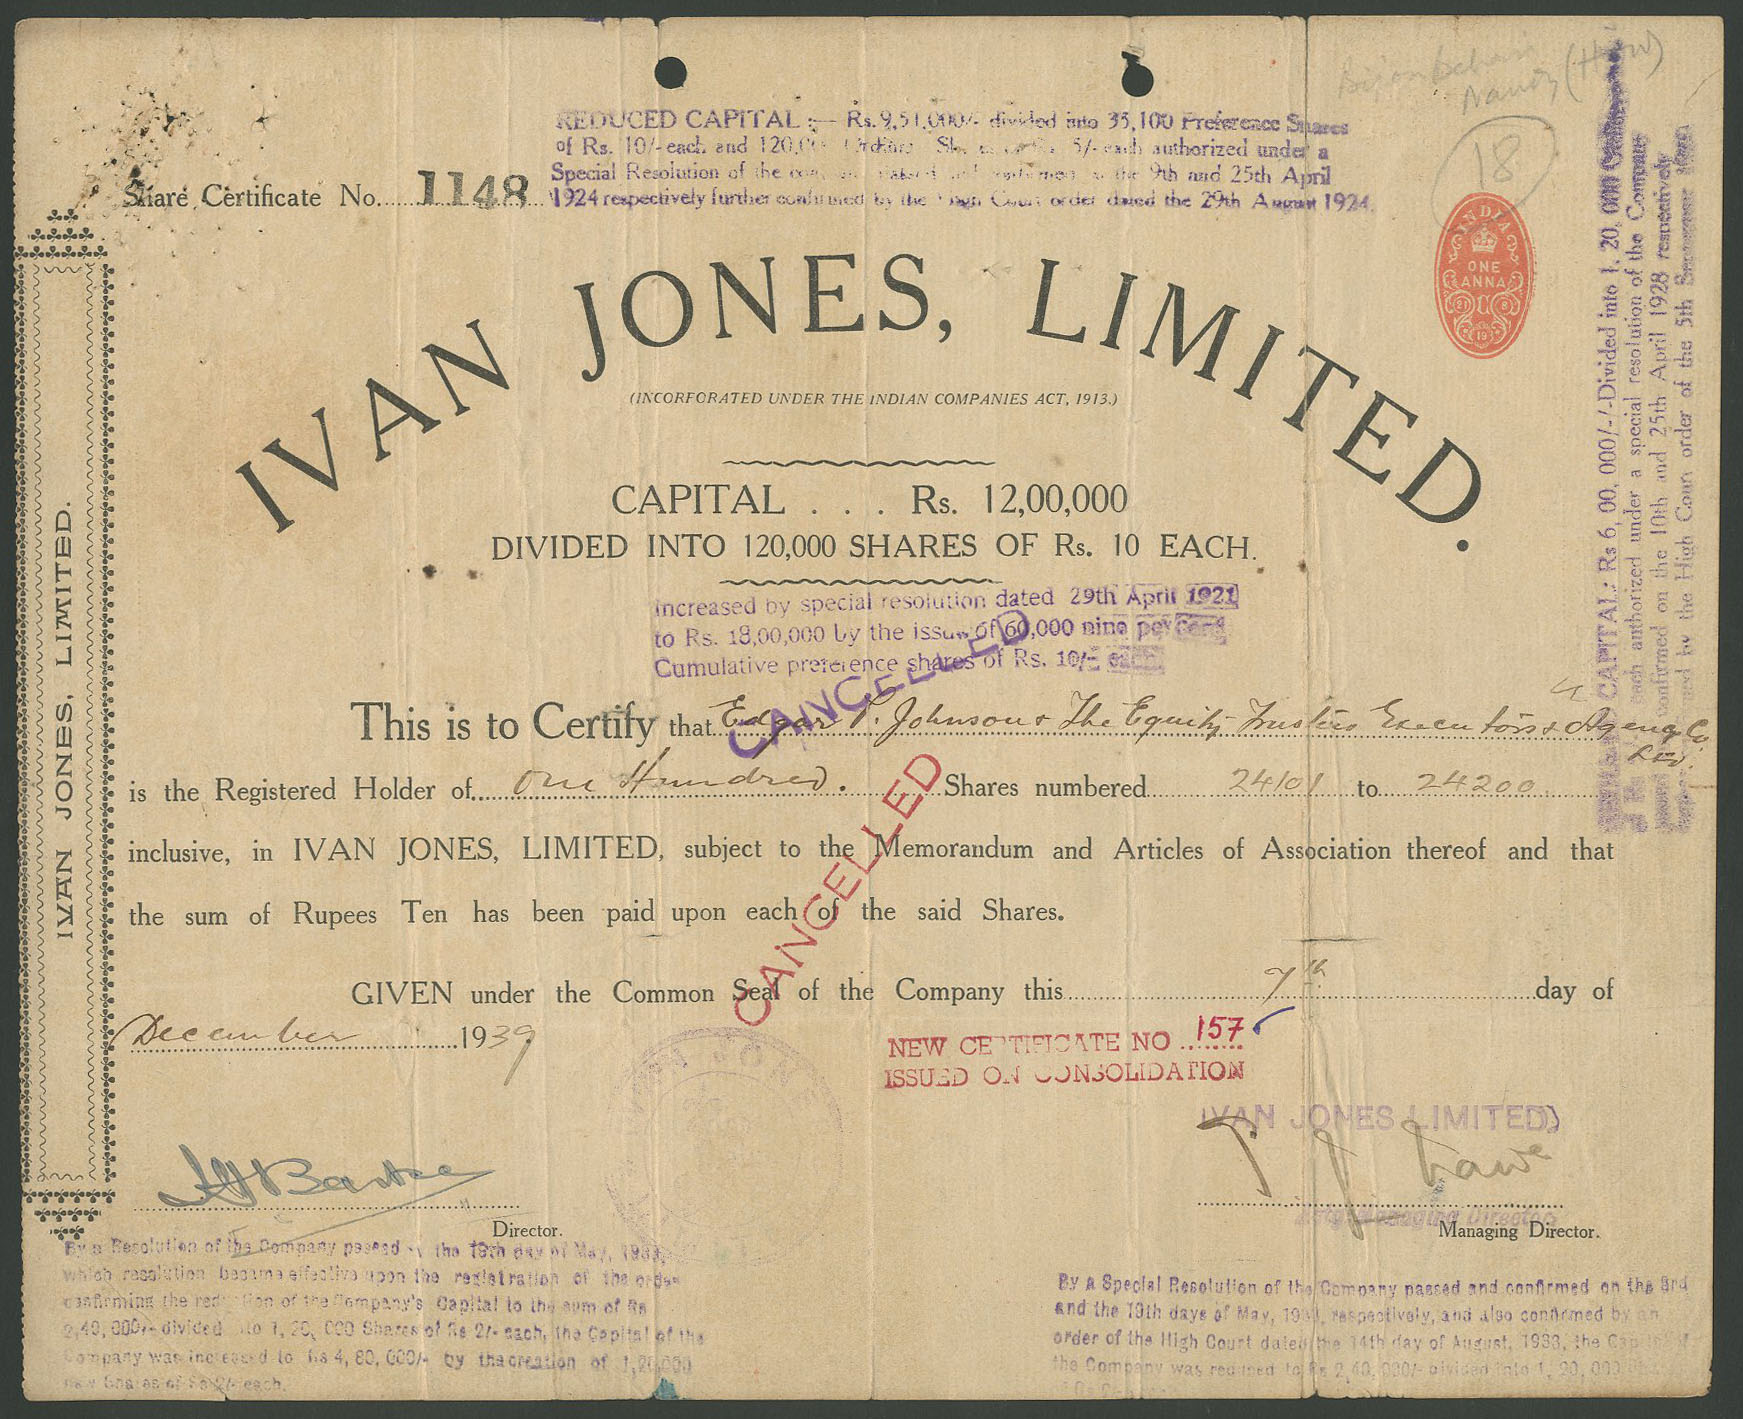 (18)
REDUCED CAPITAL :— Rs. 9,51,000/- divided into 35,100 Preference Shares
of Rs. 10/- each and 120,0 5/- each authorized under a
Special Resolution of the 9th and 25th April
1924 respectively further confirmed by the High Court order dated the 29th August 1924.
Share Certificate No. 1148
INDIA
ONE
ANNA
IVAN JONES, LIMITED.
(INCORPORATED UNDER THE INDIAN COMPANIES ACT, 1913.)
CAPITAL . . . Rs. 12,00,000
DIVIDED INTO 120,000 SHARES OF Rs. 10 EACH.
Increased by special resolution dated 29th April 1921
to Rs. 18,00,000 by the issue of 60,000 nine per cent
Cumulative preference shares of Rs. 10/- each
CANCELLED
This is to Certify that Edgar P. Johnson & The Equity Trustees Executors & Agency Co
Ltd.
is the Registered Holder of One Hundred. Shares numbered 24101 to 24200
inclusive, in IVAN JONES, LIMITED, subject to the Memorandum and Articles of Association thereof and that
the sum of Rupees Ten has been paid upon each of the said Shares.
CANCELLED
GIVEN under the Common Seal of the Company this 7th day of
December 1939
NEW CERTIFICATE NO 157
ISSUED ON CONSOLIDATION
IVAN JONES LIMITED
Director.
Managing Directors
Managing Director.
By a Resolution of the Company passed the 19th day of May, 1933,
which resolution became effective upon the registration of the order
confirming the reduction of the Company's Capital to the sum of Rs
2,40,000/- divided into 1,20,000 Shares of Rs 2/- each, the Capital of the
Company was increased to Rs 4,80,000/- by the creation of 1,20,000
new Shares of Rs 2/- each.
By a Special Resolution of the Company passed and confirmed on the 3rd
and the 19th days of May, 1933, respectively, and also confirmed by an
order of the High Court dated the 14th day of August, 1933, the Capital of
the Company was reduced to Rs 2,40,000/- divided into 1,20,000
IVAN JONES, LIMITED.
CAPITAL: Rs 6,00,000/- Divided into 1,20,000
each authorized under a special resolution of the Company
confirmed on the 10th and 25th April 1928 respectively
by the High Court order of the 5th